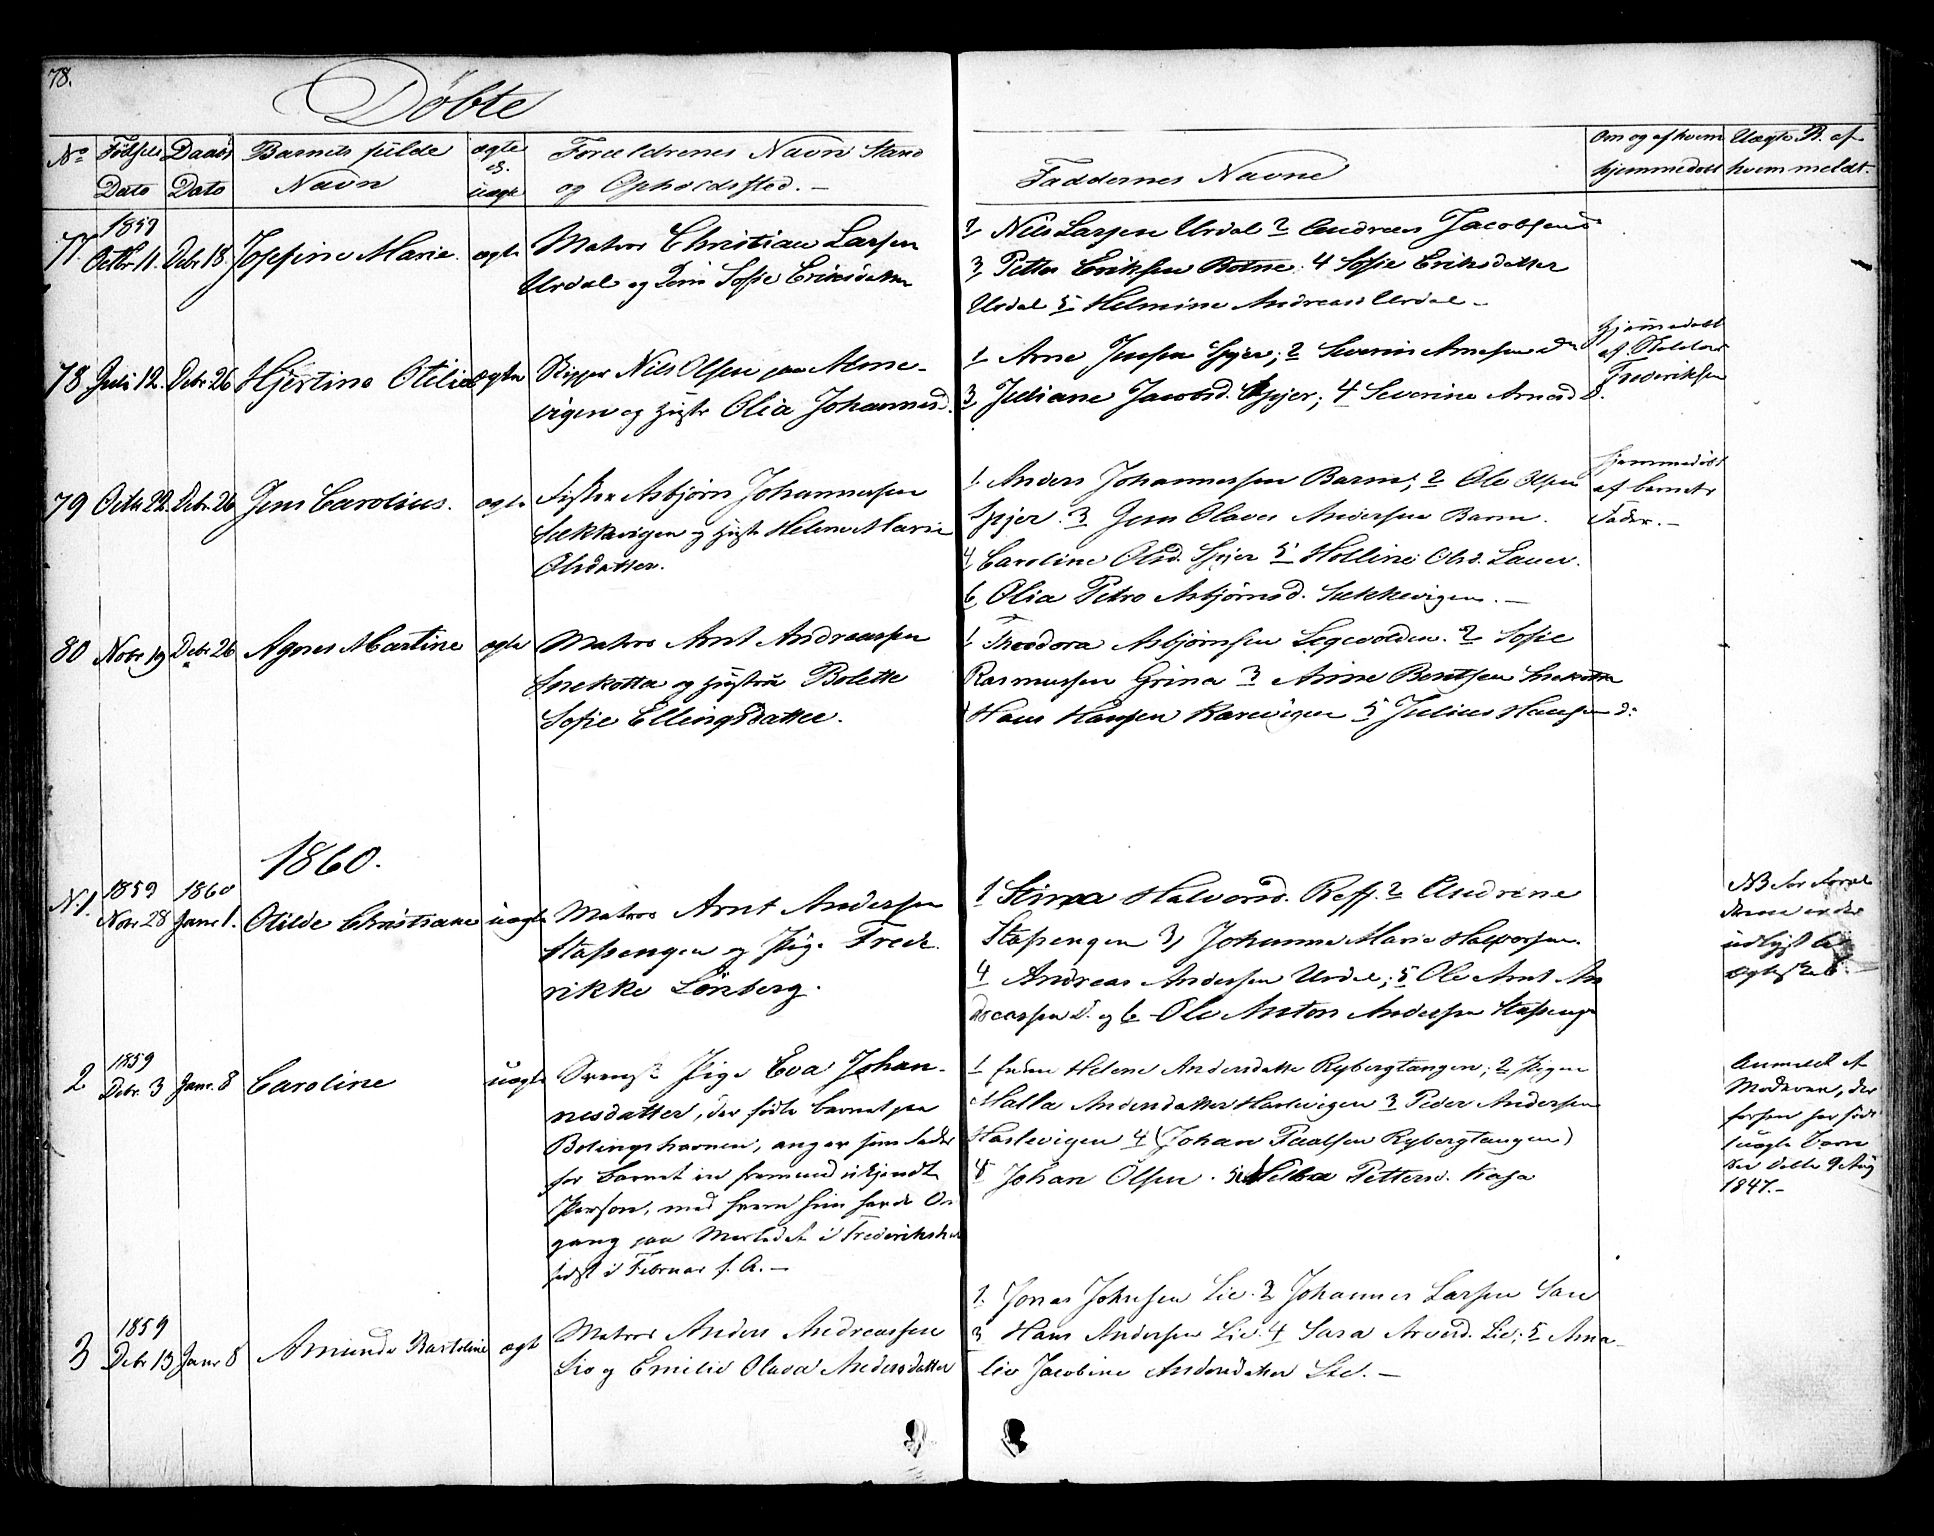 78.
Döbte
No Födsels Dato Daabs Dato Barnets fulde Navn ægte el. uægte Forældrenes Navn Stand og Opholdssted. –
Faddernes Navne
Om og af hvem hjemmedöbt
Uægte B. af hvem meldt.
77. 1859 Octbr 11. Debr 18. Josefine Marie. ægte
Matros Christian Larsen
Urdal og Sofie Eriksdatter
Nils Larsen Urdal 2 Andreas Jacobsen
3 Petter Eriksen Botne. 4 Sofie Eriksdatter
Urdal 5 Helmine Andreasd Urdal –
78 Juli 12. Debr 26 Hjertine Otilie ægte
Skipper Nils Olsen paa
vigen og Hustr Olia Johannesd.
1 Arne Jensen Spjer; 2 Severin Arnesen
3 Juliane Jacobsd. Spjer; 4 Severine Arnesd
hjemmedöbt
af
Frederiksen
79 Octbr 22. Debr. 26 Jens Carolius. ægte
Fisker Asbjörn Johannessen
Sækkevigen og Hust Helene Marie
Olsdatter.
1 Anders Johannessen Barm; 2 Ole Olsen
Spjer. 3 Jens Olaves Andersen Barm.
4 Caroline Olsd. Spjer 5 Holline Olsd. Lauer.
6 Olia Petra Asbjörnsd. Sækkevigen. –
hjemmedöbt
af barnets
Fader. –
80 Novbr 19 Debr 26 Agnes Martine ægte
Matros Arnt Andreassen
Snekotta og Hustru Bolette
Sofie Ellingsdatter.
1 Theodora Asbjörnsen Segevolden. 2 Sofie
Rasmussen Grina 3 Anne Bentsen Snekotta
Hans Hansen Karevigen 5 Julius Hansen d:
1860.
N.1. 1859 Novr 28 1860 Janr 1. Otilde Christiane uægte
Matros Arnt Andersen
Stafsengen og Pige Frede
rikke Lönberg.
1 Stina Halvorsd. Reff. 2 Andrine
Stafsengen 3, Johanne Marie Halvorsen.
4 Andreas Andersen Urdal; 5 Ole Arnt An
dreassen d. og 6 Ole Anton Andersen Stafsenge
NB for Foræl
drene er der
udlyst til
Ægteskab. –
2 1859 Debr. 3 Janr. 8 Caroline uægte
Svensk Pige Eva Johan-
nesdatter, der födte barnet paa
Bolingshavnen, angav som Fader
for barnet en fremmed ukjendt
Person, med hvem hun havde Om
gang paa Markedet i Frederikshald
sidst i Februar f. A. –
1 Helene Andersdatter Rybergtangen; 2 Pigen
Malla Andersdatter Haslevigen 3 Peder Andersen
Haslevigen 4 (Johan Paalsen Rybergtangen)
4 Johan Olsen. 5 Petters. Kasa
Anmeldt af
Moderen, der
forhen har födt
1 uægte Barn
see dette 9 Aug
1847. –
3 1859 Debr 13 Janr 8 Amunda Bartoline ægte
Matros Anders Andreassen
Lie og Emilie Olava Andersdatter
1. Jonas Johnsen Lie. 2 Johannes Larsen Sand
3 Hans Andersen Lie. 4 Sara Arvesd. Lie; 5 Ama-
lie Jacobine Andersdatter Lie. –